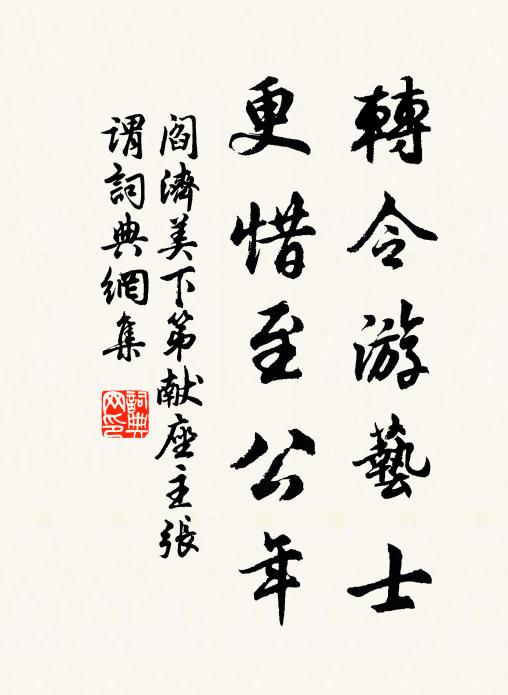 轉令游藝士
更惜至公年
閻濟美下第献座主張
謂詞典網集
詞典网印